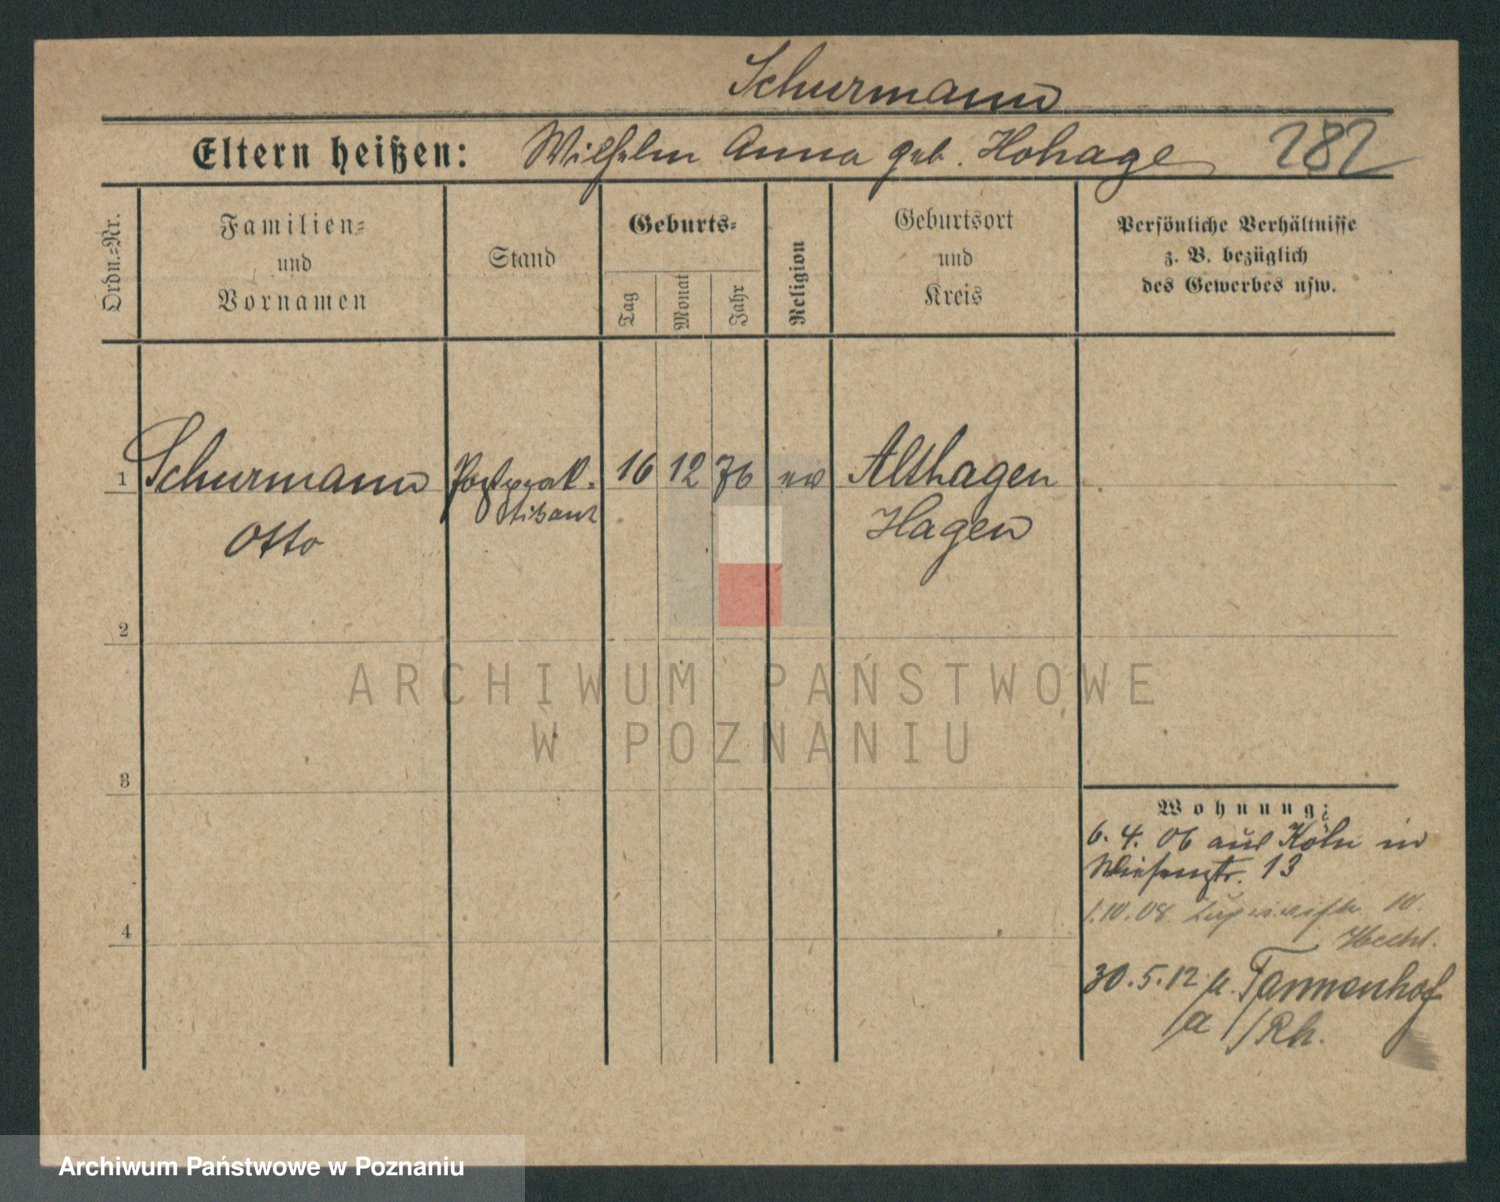 Schurmann
Eltern heißen: Wilhelm Anna geb. Hohage 282
Ordn.-Nr.
Familien-
und
Vornamen
Stand
Geburts-
Tag
Monat
Jahr
Religion
Geburtsort
und
Kreis
Persönliche Verhältnisse
z. B. bezüglich
des Gewerbes usw.
1 Schurmann Postprak- 16 12 76 ev Althagen
tikant
Otto
Hagen
2
ARCHIWUM PAŃSTWOWE
W POZNANIU
3
Wohnung:
6. 4. 06 aus Köln in
Wiesenstr. 13
1.10.08 10.
Hechl.
4
30.5.12 n. Tannenhof
a/Rh.
Archiwum Państwowe w Poznaniu